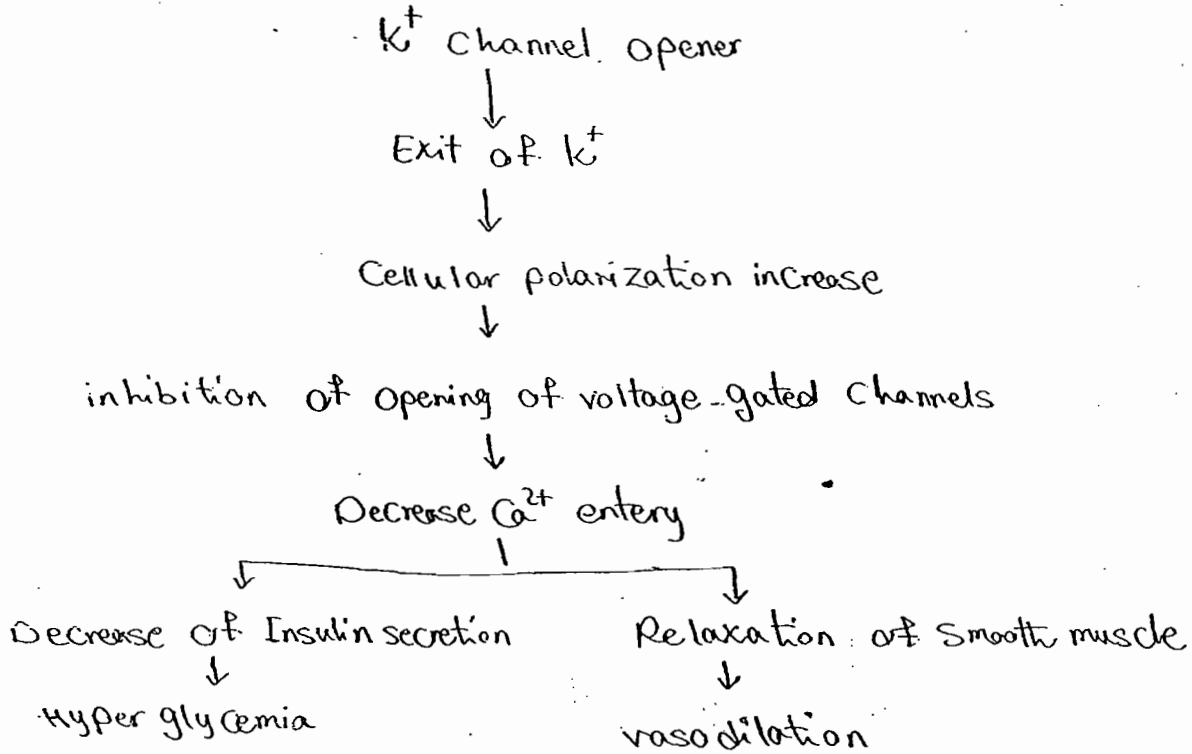 K⁺ Channel opener
Exit of K⁺
Cellular polarization increase
inhibition of opening of voltage-gated channels
Decrease Ca²⁺ entery
Decrease of Insulin secretion Relaxation of smooth muscle
Hyper glycemia vasodilation